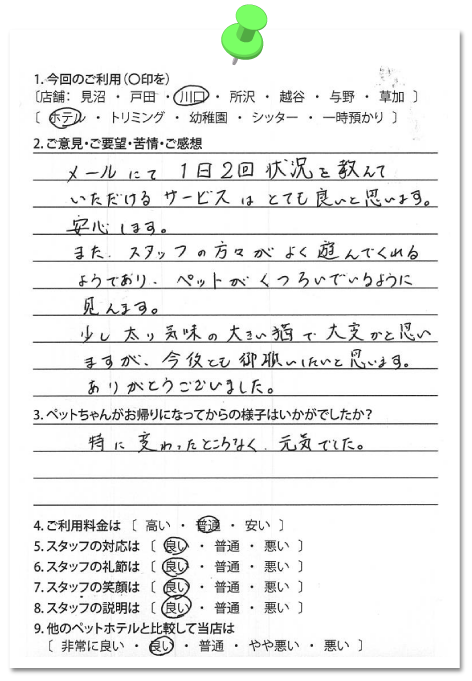 1. 今回のご利用(〇印を)
〔店舗: 見沼 ・ 戸田 ・ 川口 ・ 所沢 ・ 越谷 ・ 与野 ・ 草加 〕
〔 ホテル ・ トリミング ・ 幼稚園 ・ シッター ・ 一時預かり 〕
2. ご意見・ご要望・苦情・ご感想
メールにて 1日2回 状況を教えて
いただけるサービスはとても良いと思います。
安心します。
また、スタッフの方々がよく遊んでくれる
ようであり、ペットがくつろいでいるように
見えます。
少し太り気味の大きい猫で大変かと思い
ますが、今後とも御願いしたいと思います。
ありがとうございました。
3. ペットちゃんがお帰りになってからの様子はいかがでしたか?
特に変わったところなく、元気でした。
4. ご利用料金は 〔 高い ・ 普通 ・ 安い 〕
5. スタッフの対応は 〔 良い ・ 普通 ・ 悪い 〕
6. スタッフの礼節は 〔 良い ・ 普通 ・ 悪い 〕
7. スタッフの笑顔は 〔 良い ・ 普通 ・ 悪い 〕
8. スタッフの説明は 〔 良い ・ 普通 ・ 悪い 〕
9. 他のペットホテルと比較して当店は
〔 非常に良い ・ 良い ・ 普通 ・ やや悪い ・ 悪い 〕